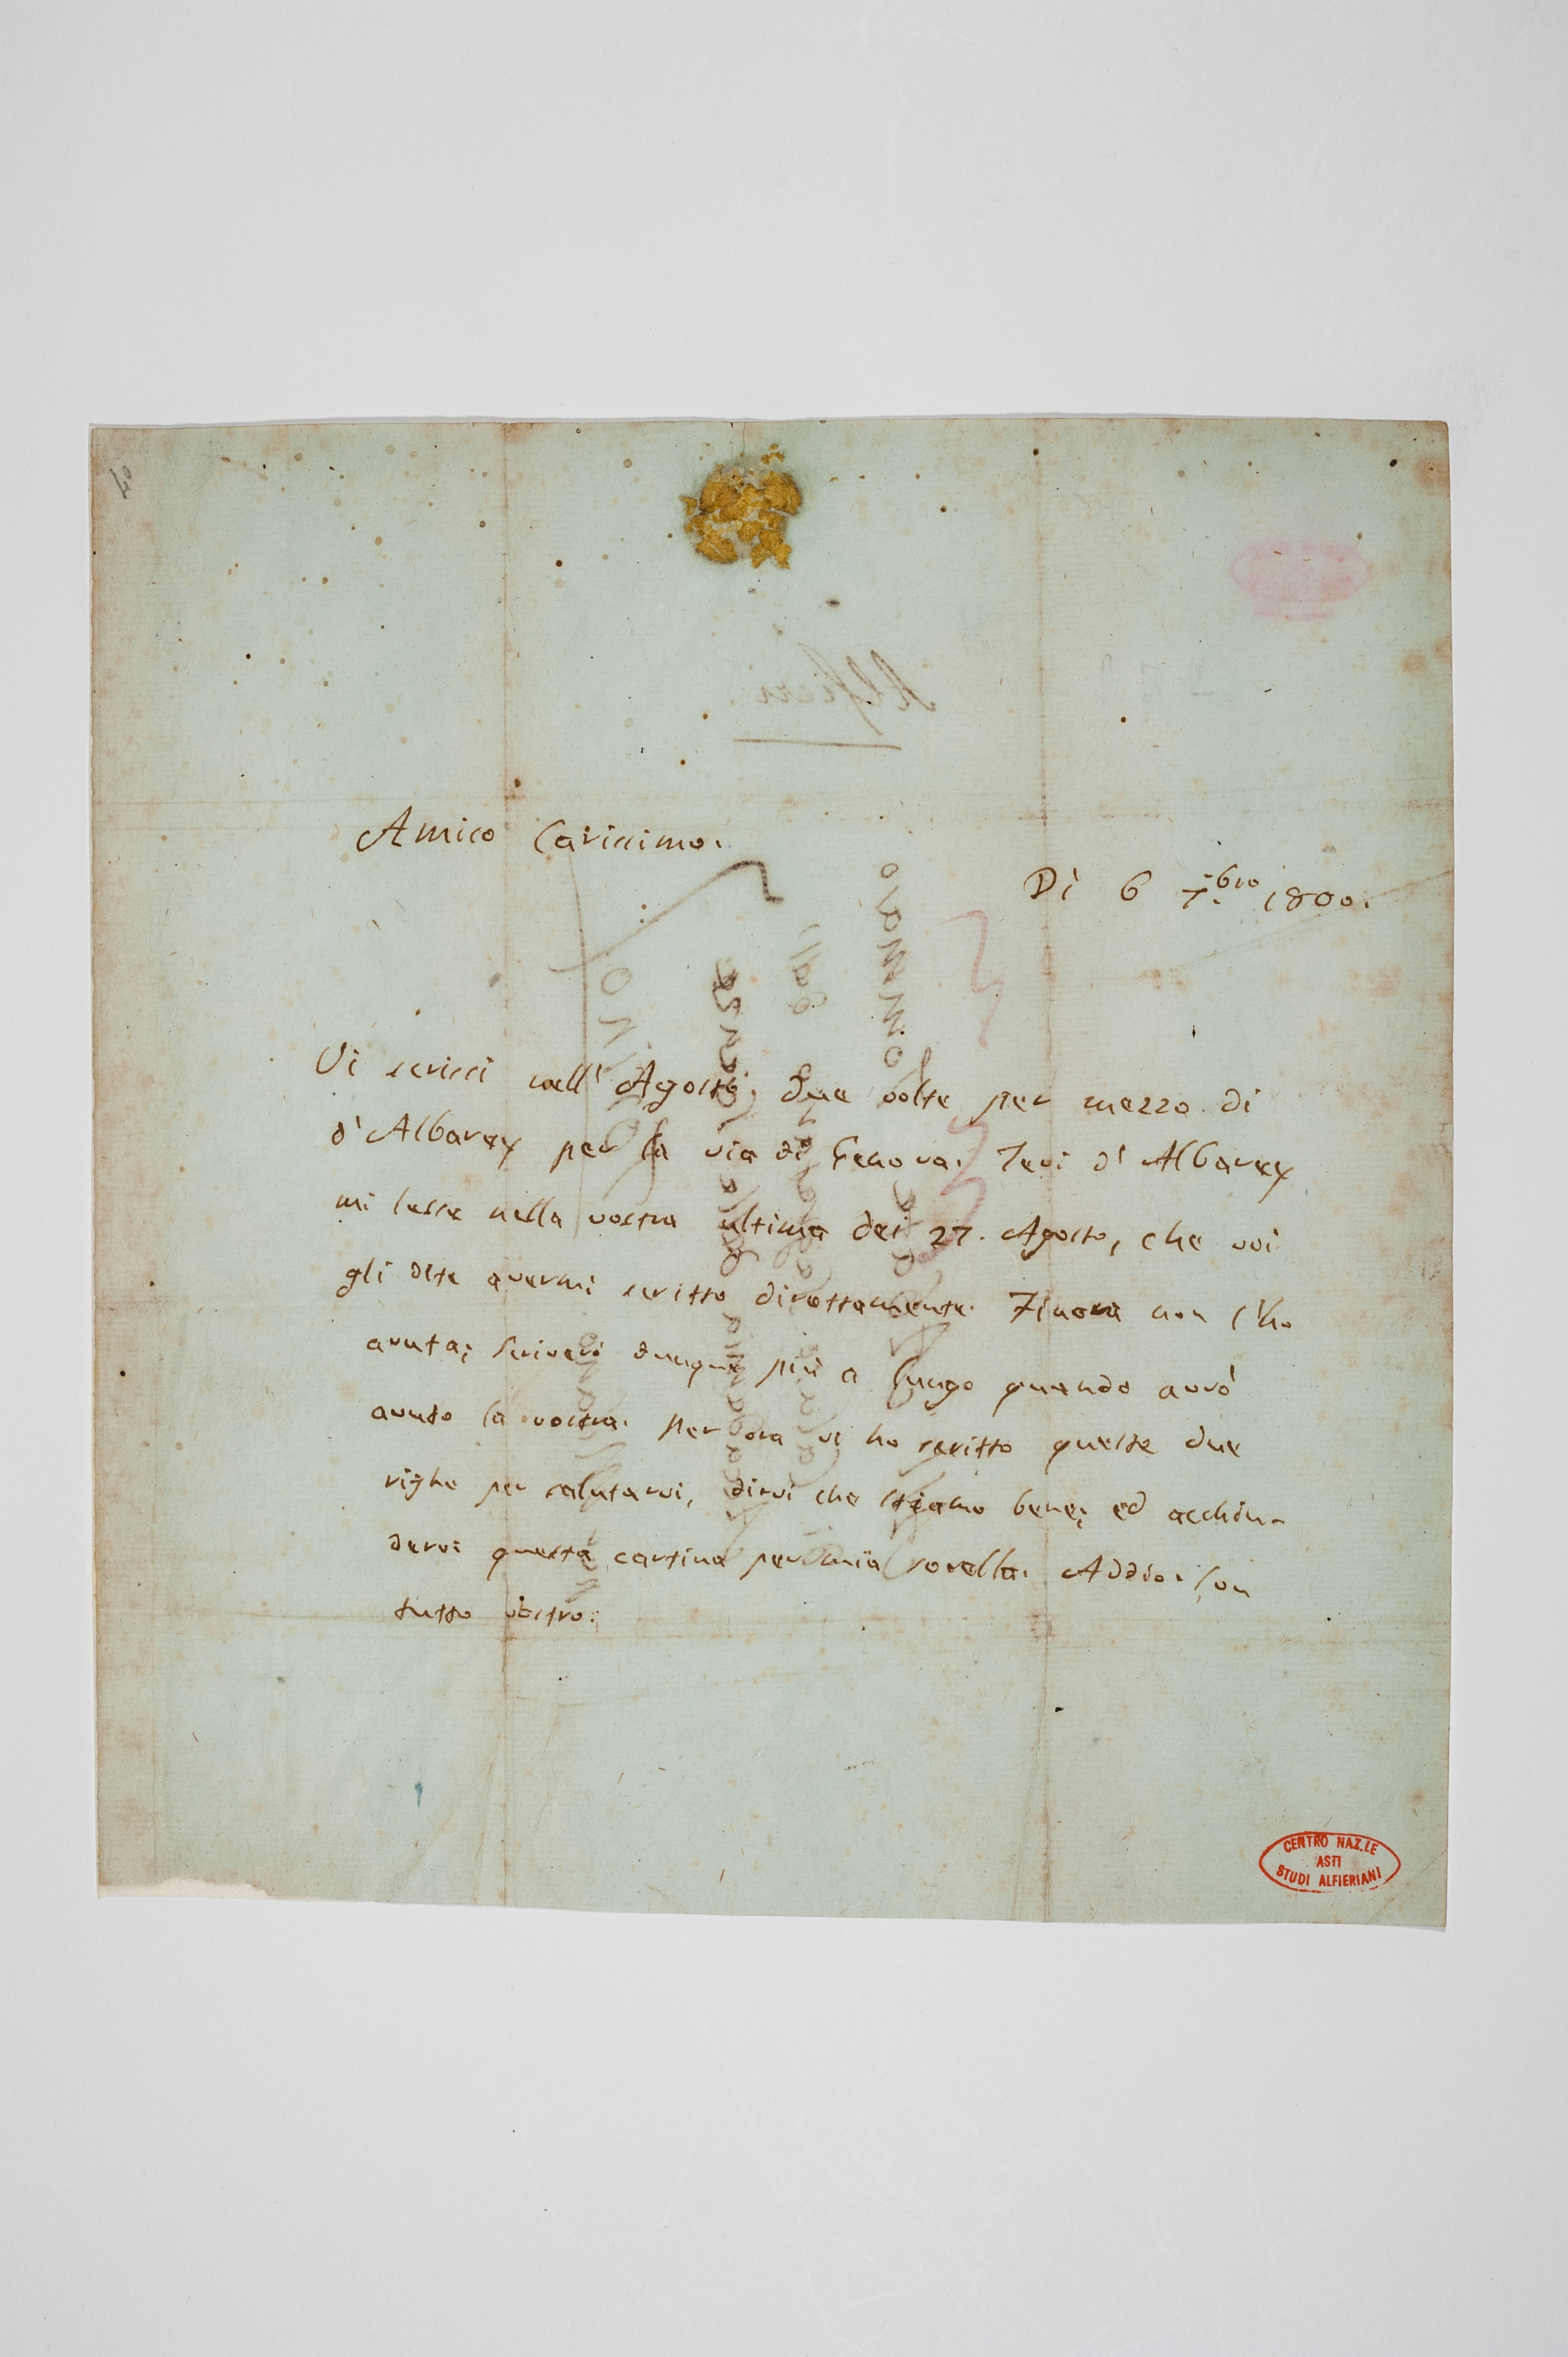 Amico Carissimo.
Dì 6 7.bre 1800.
Vi scrissi nell' Agosto, due volte per mezzo di
d'Albarey per la via di Genova. Ieri d'Albarey
mi lesse nella vostra ultima dei 27. Agosto, che voi
gli dite avermi scritto direttamente. Finora non l'ho
avuta; scriverò dunque più a lungo quando avrò
avuto la vostra. Per ora vi ho scritto queste due
righe per salutarvi, dirvi che stiamo bene; ed acchiu-
dervi questa cartina per mia sorella. Addio. Son
tutto vostro.
Alfieri.
CENTRO NAZ.LE
ASTI
STUDI ALFIERIANI